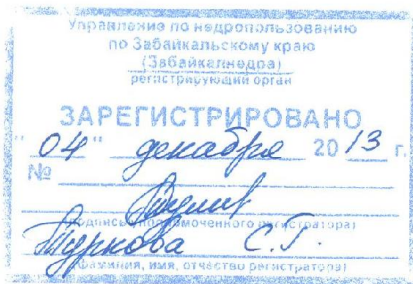 Управление по недропользованию
по Забайкальскому краю
(Забайкалнедра)
регистрирующий орган
ЗАРЕГИСТРИРОВАНО
"04" декабря 2013 г.
№
(подпись уполномоченного регистратора)
Туркова С.Г.
(фамилия, имя, отчество регистратора)